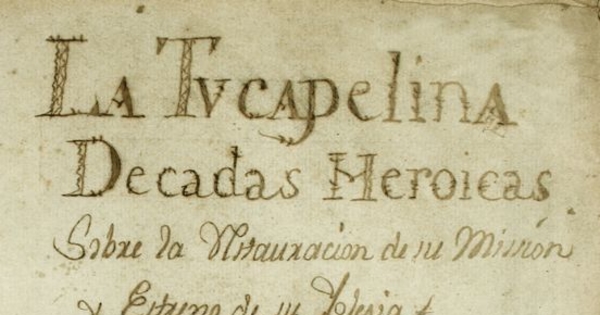 La Tvcapelina
Decadas Heroicas
Sobre la Ristauracion de su Mission
y Estreno de su Yglesia